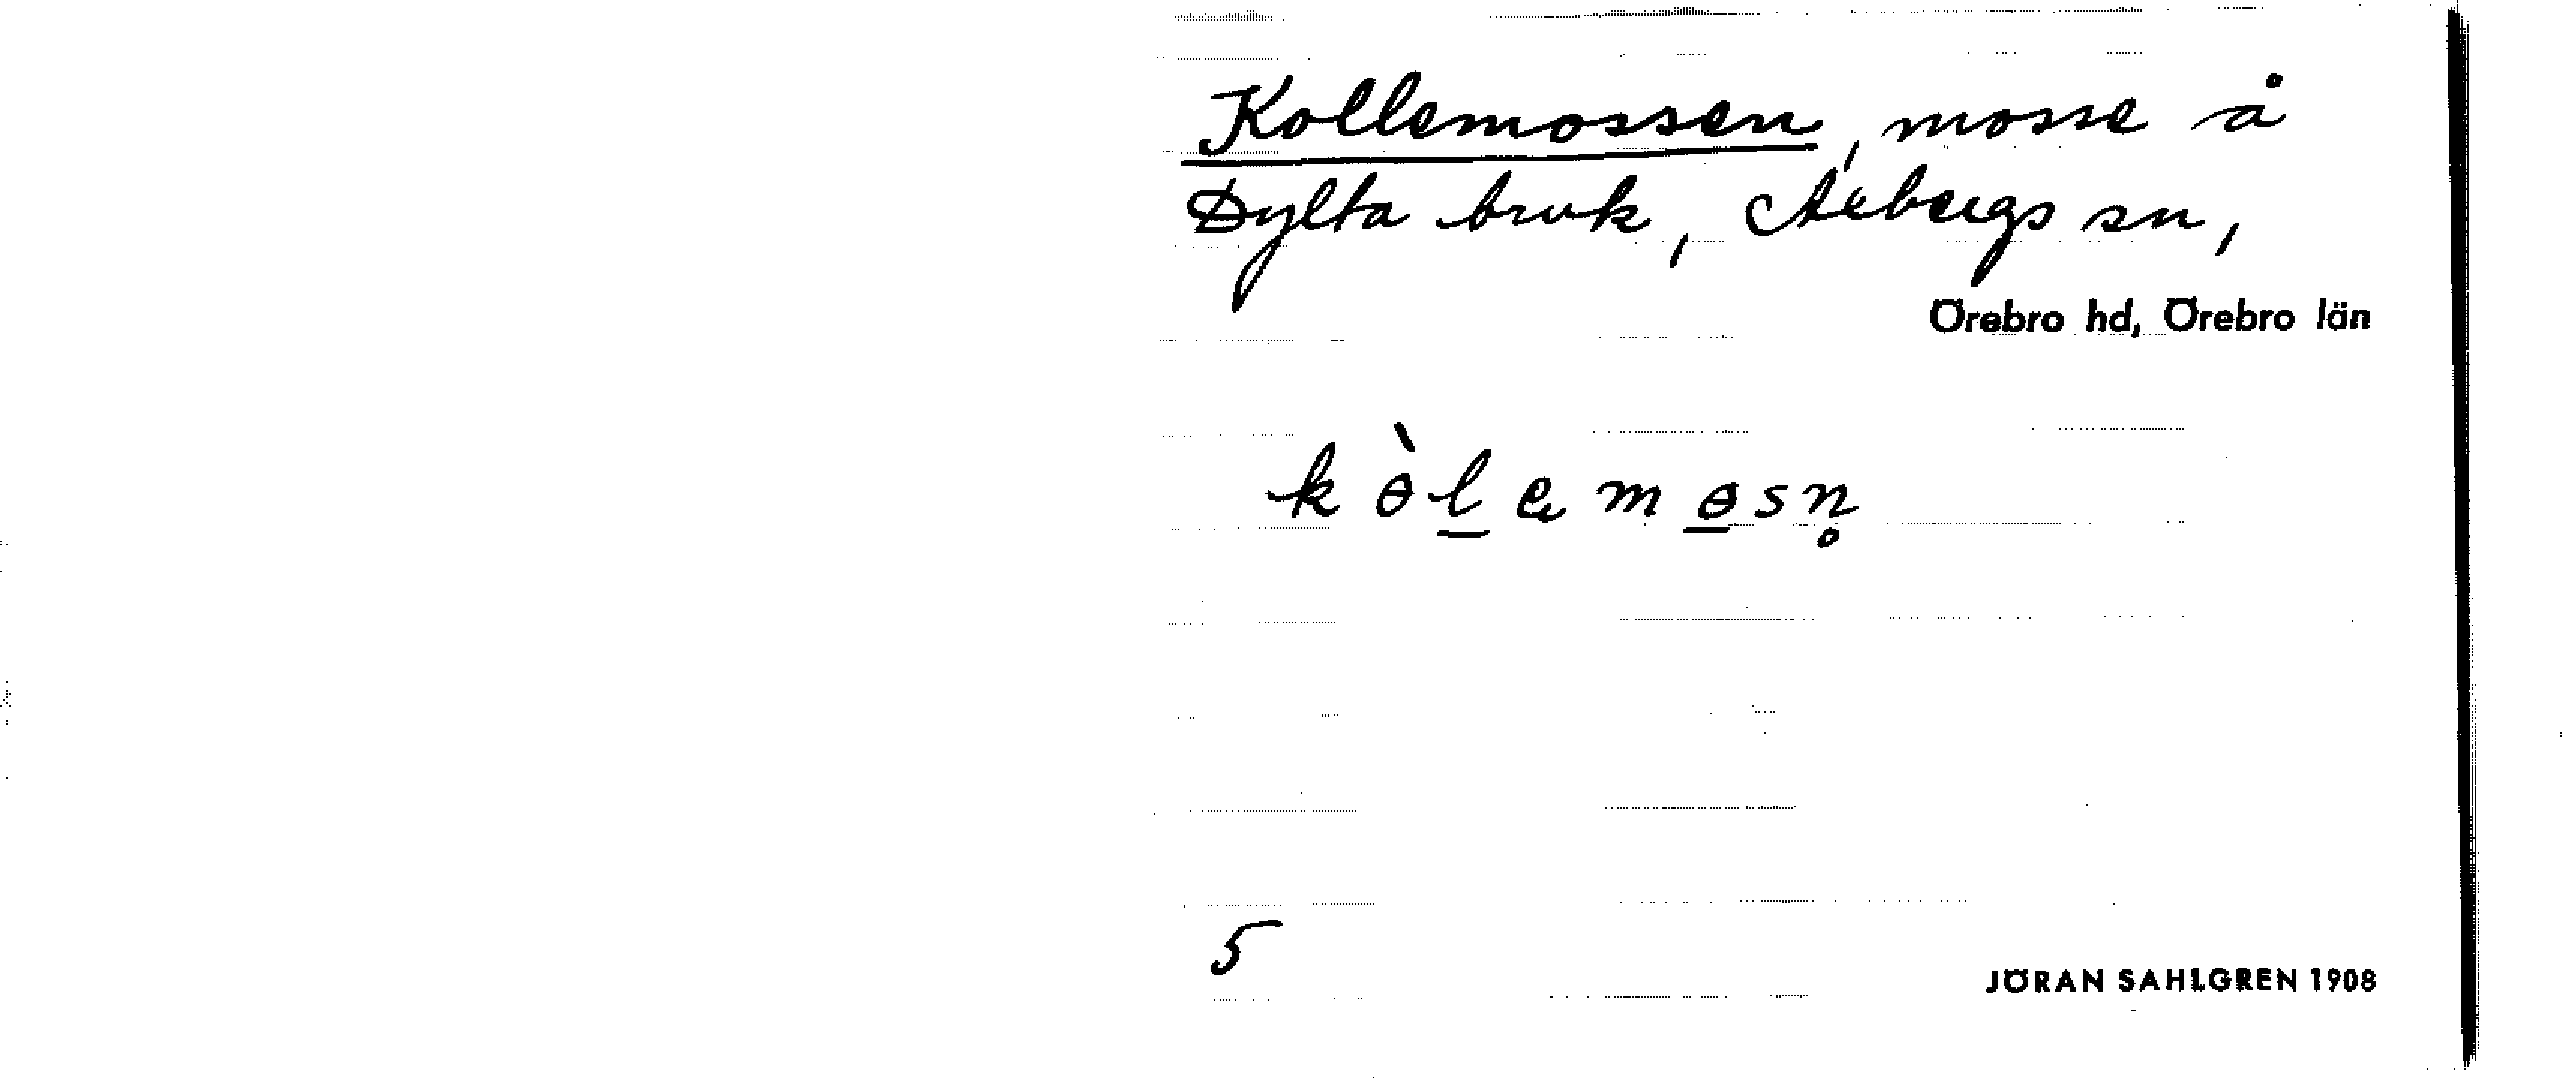 Kollemossen, mosse å
Dylta bruk, Axbergs sn,
Örebro hd, Örebro län
k ɵ̀ l̲ e m ɵ̲ s n̥
5
JÖRAN SAHLGREN 1908